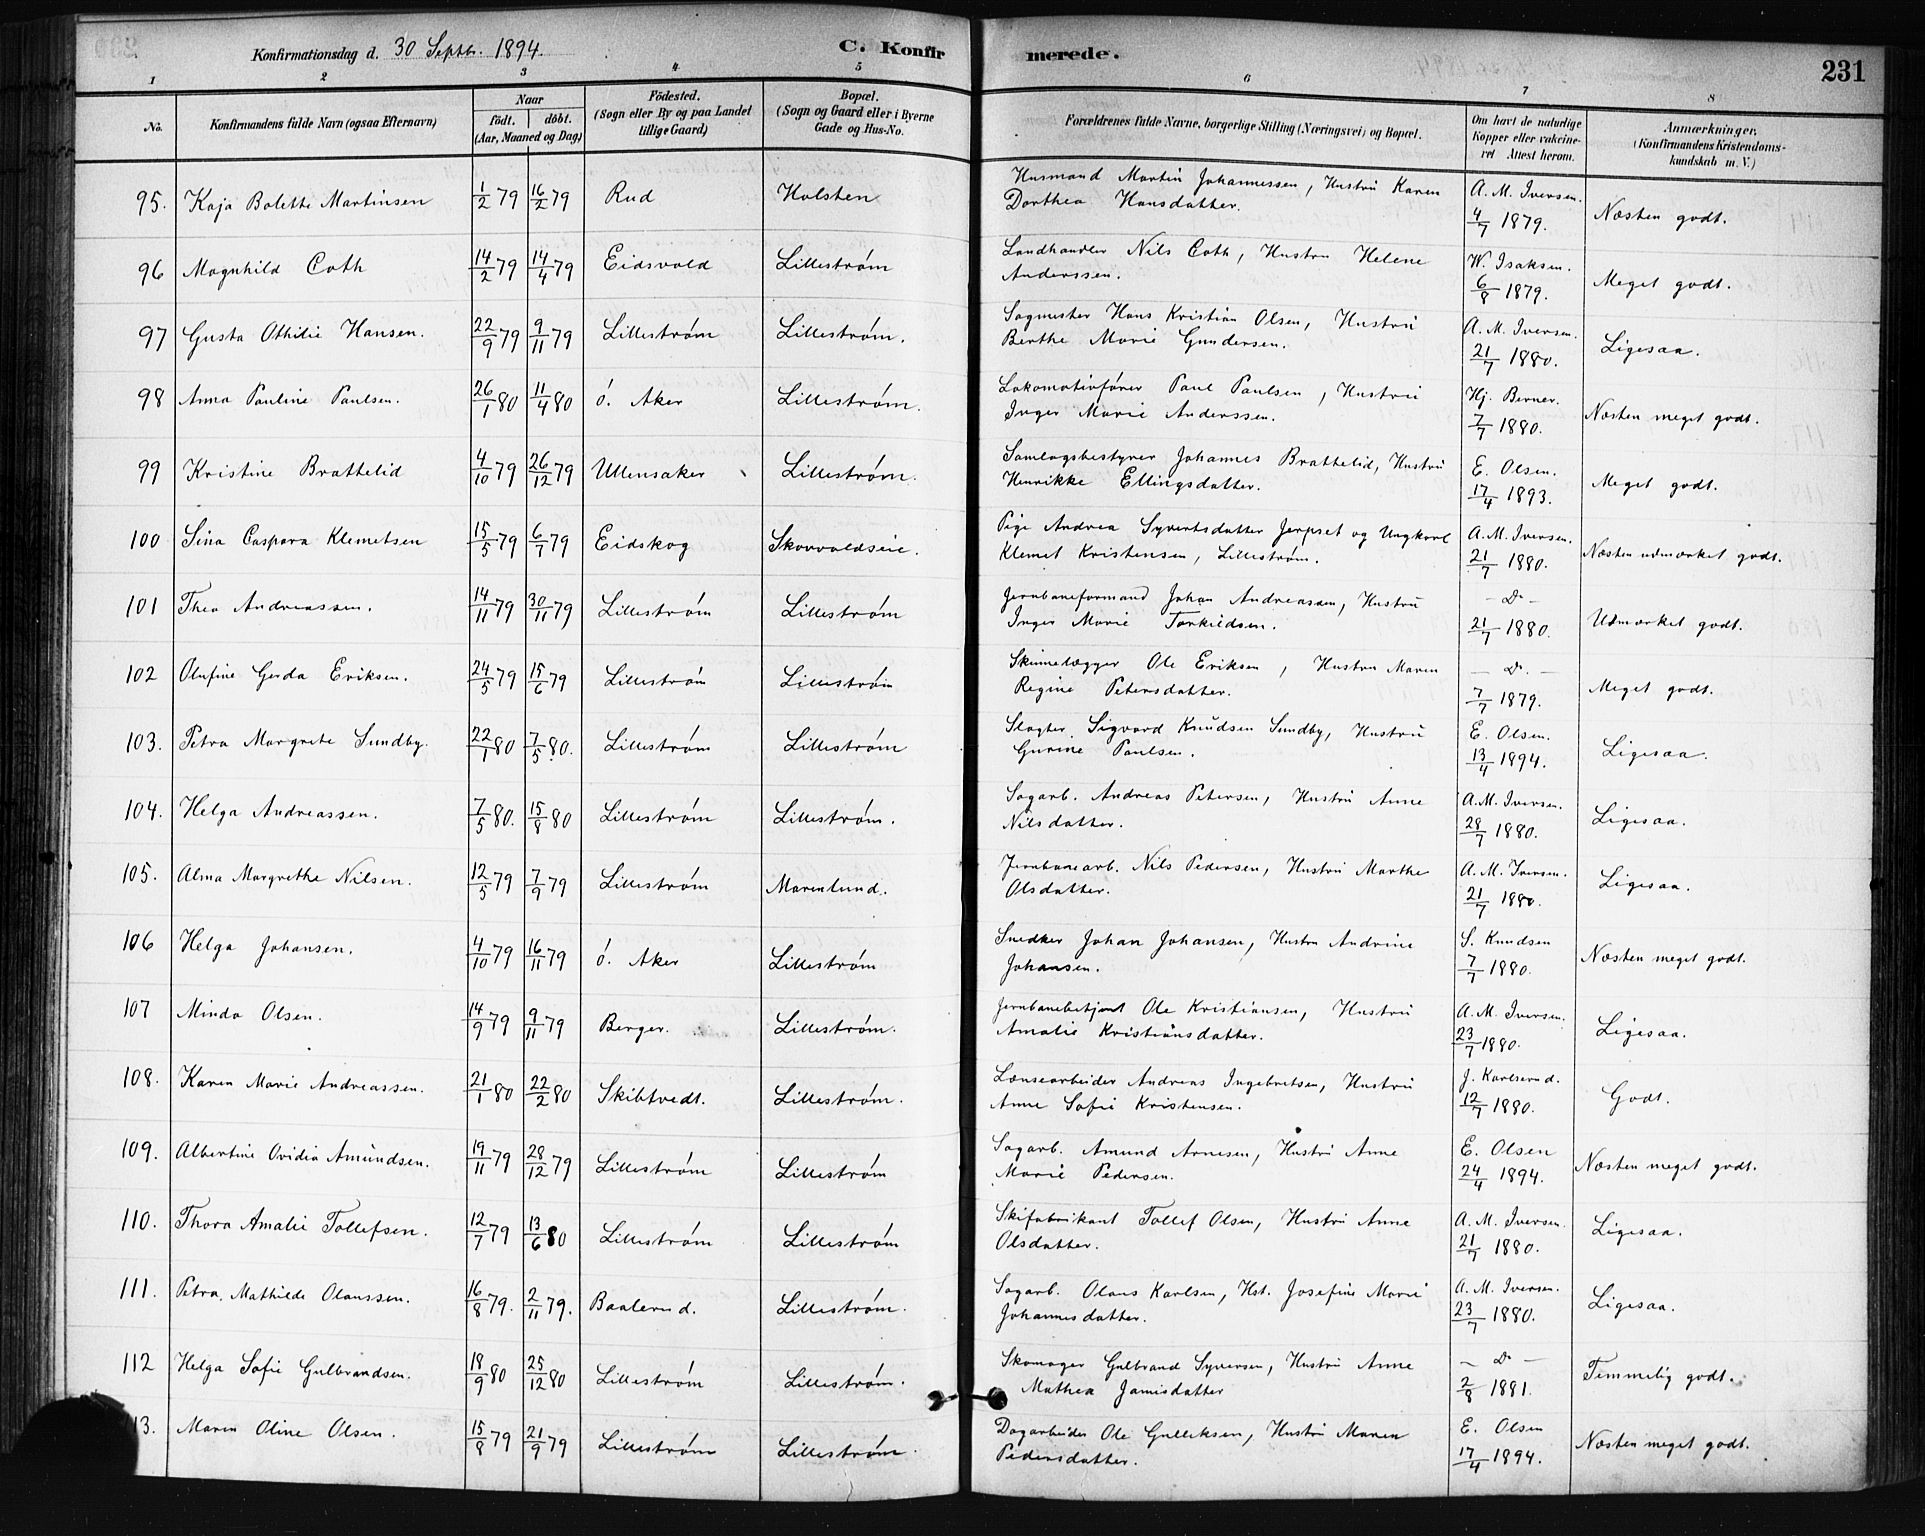 Konfirmationsdag d. 30 Septbr. 1894. C. Konfirmerede. 231
1 2 3 4 5 6 7 8
No. Konfirmandens fulde Navn (ogsaa Efternavn) Naar födt. döbt. (Aar, Maaned og Dag) Födested. (Sogn eller By og paa Landet tillige Gaard) Bopæl. (Sogn og Gaard eller i Byerne Gade og Hus-No. Forældrenes fulde Navne, borgerlige Stilling (Næringsvei) og Bopæl. Om havt de naturlige Kopper eller vakcineret Attest herom. Anmærkninger. (Konfirmandens Kristendomskundskab m. V.)
95. Kaja Bolette Martinsen 1/2 79 16/2 79 Rud Holsten Husmand Martin Johannessen, Hustru Karen A. M. Iversen.
Dorthea Hansdatter. 4/7 1879. Næsten godt.
96 Magnhild Coth 14/2 79 14/4 79 Eidsvold Lillestrøm Landhandler Nils Coth, Hustru Helene W. Isaksen.
Anderssen. 6/8 1879. Meget godt.
97 Gusta Othilie Hansen. 22/9 79 9/11 79 Lillestrøm Lillestrøm. Sagmester Hans Kristian Olsen, Hustru A. M. Iversen.
Berthe Marie Gundersen. 21/7 1880. Ligesaa.
98 Anna Pauline Paulsen. 26/1 80 11/4 80 Ö. Aker Lillestrøm. Lokomotivfører Paul Paulsen, Hustru Hj. Berner.
Inger Marie Anderssen. 7/7 1880. Næsten meget godt.
99 Kristine Brattelid 4/10 79 26/12 79 Ullensaker Lillestrøm. Samlagsbestyrer Johannes Brattelid, Hustru E. Olsen.
Henrikke Ellingsdatter. 17/4 1893. Meget godt.
100 Sina Caspara Klemetsen 15/5 79 6/7 79 Eidskog Skovvoldseie. Pige Andrea Syvertsdatter Jerpset og Ungkarl A. M. Iversen.
Klemet Kristensen, Lillestrøm. 21/7 1880. Næsten udmærket godt.
101 Thea Andreassen. 14/11 79 30/11 79 Lillestrøm Lillestrøm Jernbaneformand Johan Andreassen, Hustru - Do -
Inger Marie Torkildsen. 21/7 1880. Udmærket godt.
102 Olufine Gerda Eriksen. 24/5 79 15/6 79 Lillestrøm Lillestrøm Skinnelægger Ole Eriksen, Hustru Maren - Do. -
Regine Petersdatter. 7/7 1879. Meget godt.
103. Petra Margrete Sundby. 22/1 80 7/5 80. Lillestrøm Lillestrøm Slagter Sigvard Knudsen Sundby, Hustru E. Olsen.
Gurine Paulsen. 13/4 1894. Ligesaa.
104. Helga Andreassen. 7/5 80. 15/8 80 Lillestrøm Lillestrøm. Sagarb. Andreas Petersen, Hustru Anne A. M. Iversen.
Nilsdatter. 28/7 1880. Ligesaa.
105. Alma Margrethe Nilsen. 12/5 79 7/9 79 Lillestrøm Marenlund. Jernbanearb. Nils Pedersen, Hustru Marthe A. M. Iversen.
Olsdatter. 21/7 1880. Ligesaa.
106 Helga Johansen. 4/10 79 16/11 79 Ö. Aker Lillestrøm Snedker Johan Johansen, Hustru Andrine S. Knudsen
Johansen. 7/7 1880. Næsten meget godt.
107 Minda Olsen. 14/9 79 9/11 79 Berger. Lillestrøm. Jernbanebetjent Ole Kristiansen, Hustru A. M. Iversen.
Amalie Kristiansdatter. 23/7 1880. Ligesaa.
108. Karen Marie Andreassen. 21/1 80 22/2 80 Skibtvedt. Lillestrøm. Lænsearbeider Andreas Ingebretsen, Hustru J. Karlsrud.
Anne Sofie Kristensen. 12/7 1880. Godt.
109. Albertine Ovidia Amundsen. 19/11 79 28/12 79 Lillestrøm Lillestrøm Sagarb. Amund Arnesen, Hustru Anne E. Olsen
Marie Pedersen. 24/4 1894. Næsten meget godt.
110. Thora Amalie Tollefsen. 12/7 79 13/6 80 Lillestrøm Lillestrøm Skifabrikant Tollef Olsen, Hustru Anne A. M. Iversen.
Olsdatter. 21/7 1880. Ligesaa.
111. Petra Mathilde Olaussen. 16/8 79. 2/11 79. Baalerud. Lillestrøm. Sagarb. Olaus Karlsen, Hst. Josefine Marie A. M. Iversen.
Johannesdatter. 23/7 1880. Ligesaa.
112 Helga Sofie Gulbrandsen. 18/9 80 25/12 80 Lillestrøm Lillestrøm. Skomager Gulbrand Syversen, Hustru Anne - Do -
Mathea Jamisdatter 2/8 1881. Temmelig godt.
13. Maren Oline Olsen. 15/8 79 21/9 79 Lillestrøm Lillestrøm. Dagarbeider Ole Gulliksen, Hustru Maren E. Olsen
Pedersdatter. 17/4 1894. Næsten meget godt.